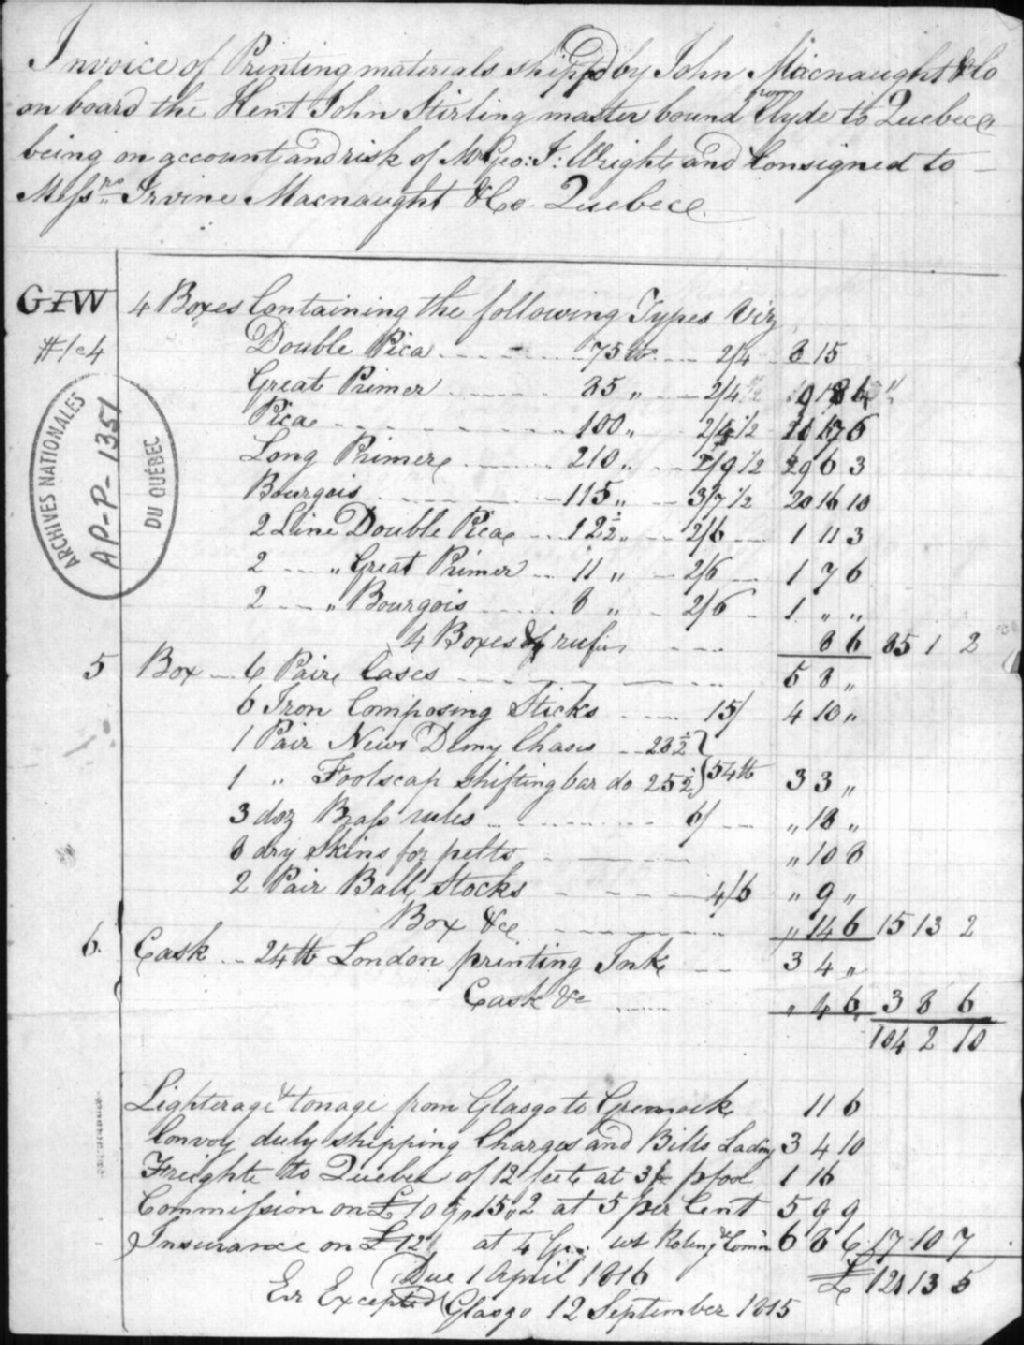 Invoice of Printing materials shipp'd by John Macnaught & Co
on board the Kent John Stirling master bound from Clyde to Quebec
being on account and risk of Mr Geo: I: Wright and Consigned to
Messrs Irvine Macnaught & Co. Quebec
GIW 4 Boxes Containing the following Types Viz
#1@4 Double Pica 75 lb 2/4 8 15
Great Primer 85 " 2/4½
Pica 100 "
Long Primer 210 " 2/9½ 29 6 3
Bourgois 115 " 3/7½ 20 16 10
2 Line Double Pica 12½ " 2/6 1 11 3
2 " Great Primer 11 " 2/6 1 7 6
2 " Bourgois 8 " 2/6 1 " "
4 Boxes 8 6 85 1 2
5 Box 6 Pair Cases 5 8 "
6 Iron Composing Sticks 15/ 4 10 "
1 Pair News Demy Chases 28½
1 " Foolscap shifting bar do 25½ } 54 lb 3 3 "
3 doz Brass rules 6/ " 18 "
8 dry Skins for pelts " 10 8
2 Pair Ball Stocks 4/6 " 9 "
Box &c " 14 6 15 13 2
6 Cask 24 lb London printing Ink 3 4 "
Cask &c " 4 6 3 8 6
104 2 10
Lighterage & tonage from Glasgo to Greenock 11 6
Convoy duty shipping Charges and Bills Lading 3 4 10
Freighte to Quebec of 12 feet at 3/ p foot 1 16
Commission on £109,,15,,2 at 5 per Cent 5 9 9
Insurance on £121 at 4 Gs 6 8 6 17 10 7
(Due 1 April 1816 £ 121 13 5
Er Excepted Glasgo 12 September 1815
ARCHIVES NATIONALES
AP-P-1351
DU QUÉBEC